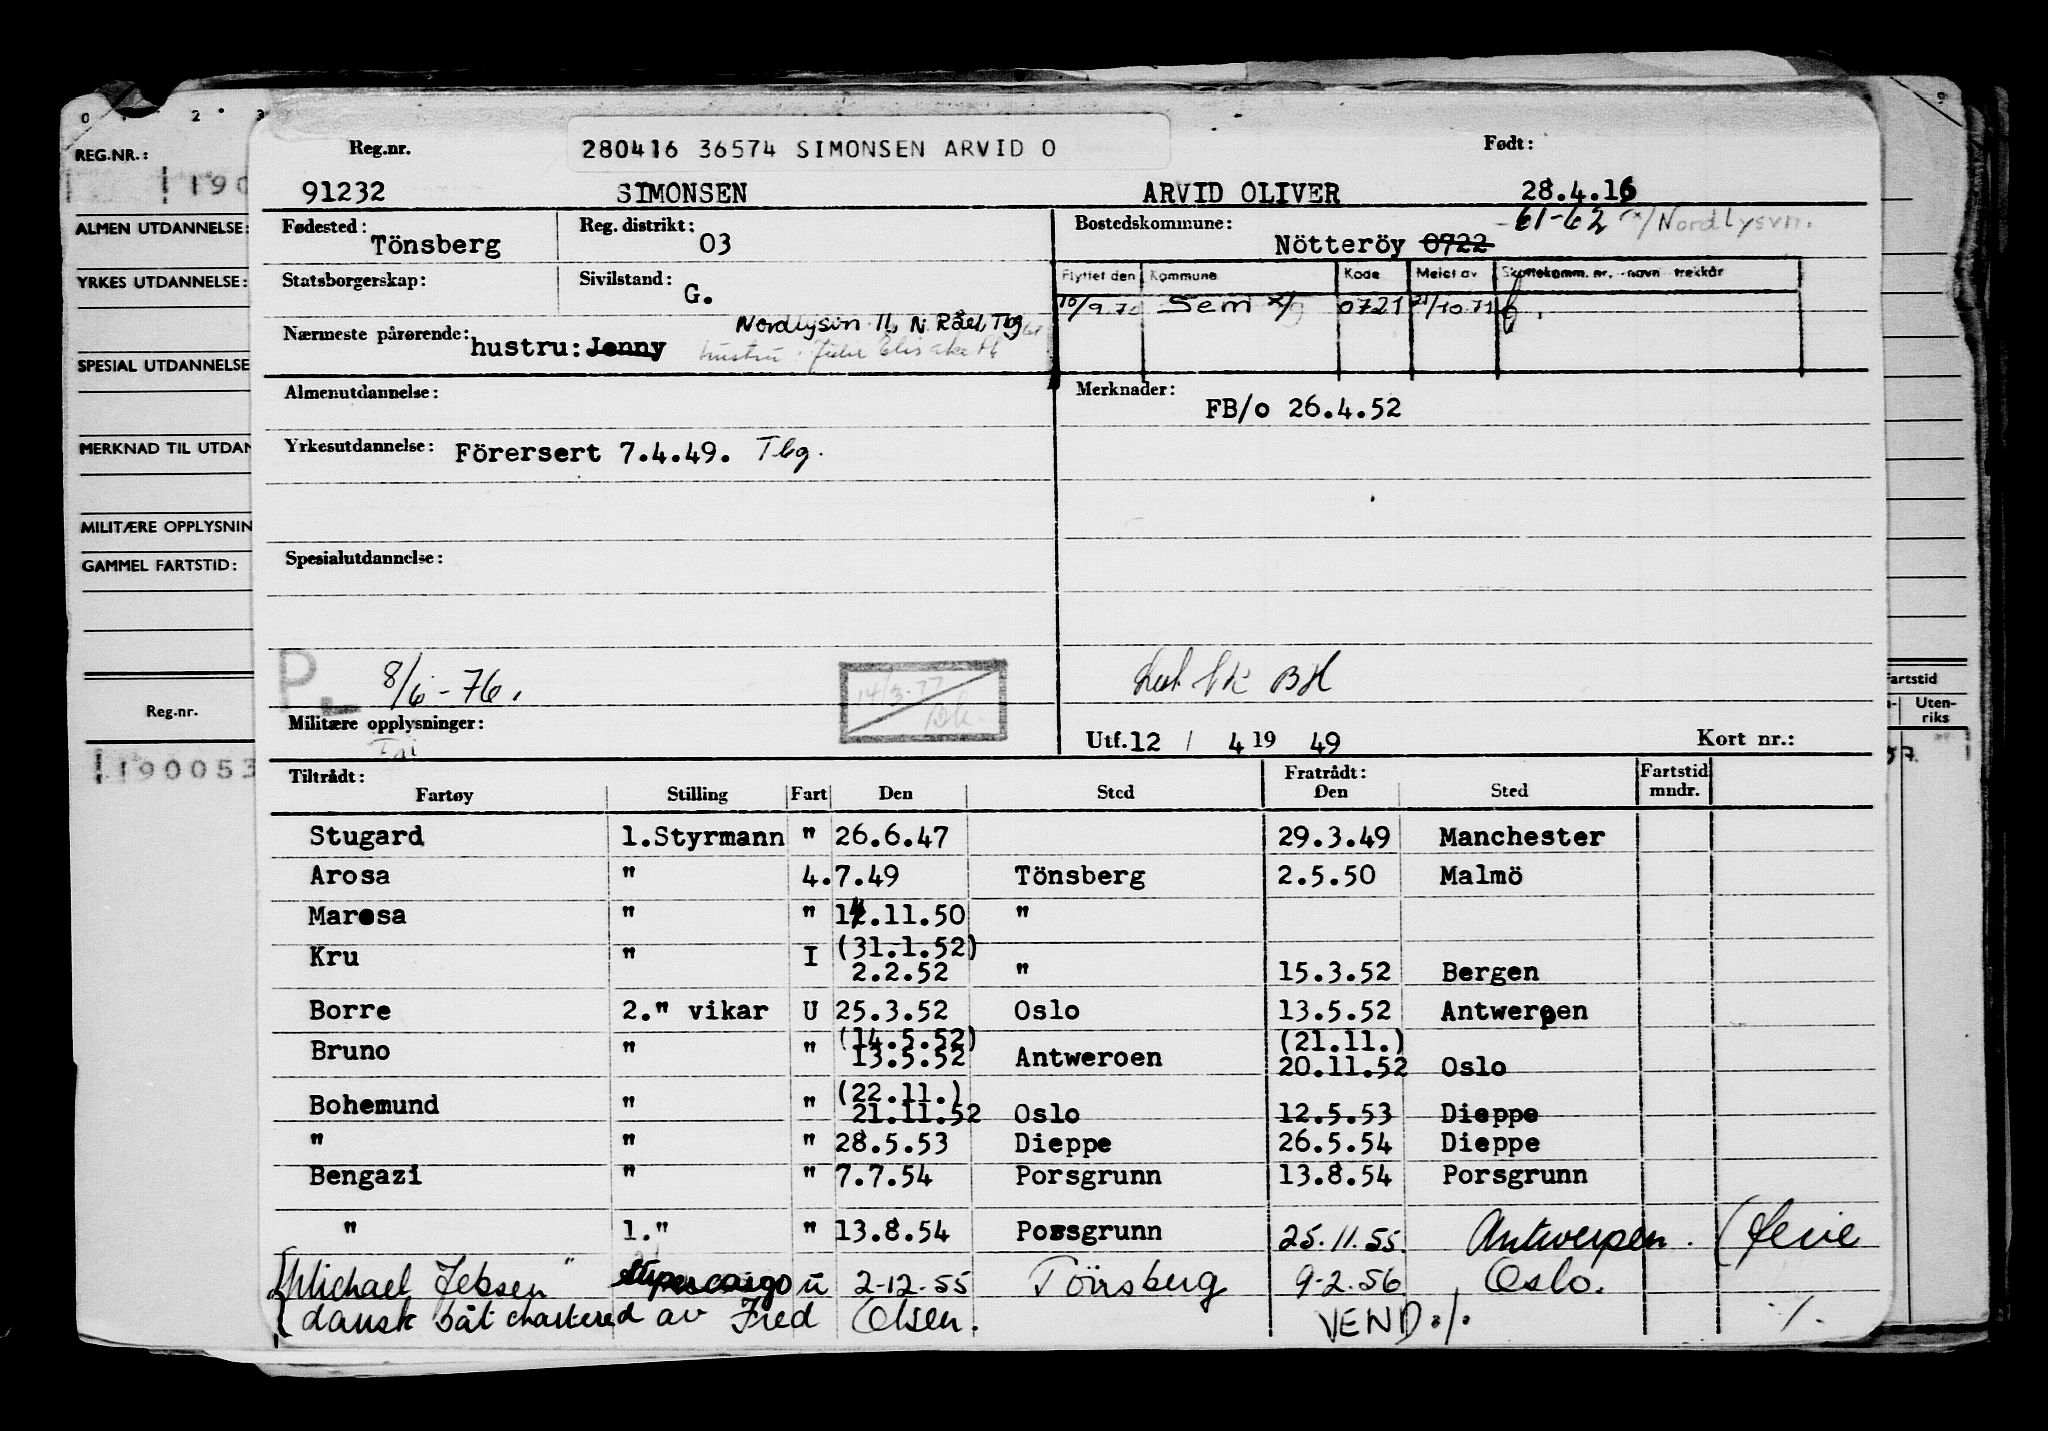 0 2 3 9
REG.NR.:
190
ALMEN UTDANNELSE:
YRKES UTDANNELSE:
SPESIAL UTDANNELSE
MERKNAD TIL UTDAN
MILITÆRE OPPLYSNIN
GAMMEL FARTSTID:
Reg.nr.
190053
Fartstid
Uten-
riks
Reg.nr. 280416 36574 SIMONSEN ARVID O Født:
91232 SIMONSEN ARVID OLIVER 28.4.16
Fødested: Tönsberg Reg. distrikt: 03 Bostedskommune: Nötteröy 0722 -61-62 x/Nordlysvn.
Statsborgerskap: Sivilstand: G.
Flyttet den Kommune Kode Meldt av Skattekomm. nr. - navn - trekkår
10/9.70 Sem x/ 0721 21/10.71
Nordlysvn 11, N Råel Tbg
Nærmeste pårørende: hustru: Jenny hustru: Julie Elisabeth
Almenutdannelse: Merknader: FB/o 26.4.52
Yrkesutdannelse: Förersert 7.4.49. Tbg.
Spesialutdannelse:
P. 8/6-76. 14/3-77 BH
Militære opplysninger: Utf.12 / 4 19 49 Kort nr.:
Tiltrådt: Fratrådt: Fartstid
Fartøy Stilling Fart Den Sted Den Sted mndr.
Stugard 1.Styrmann " 26.6.47 29.3.49 Manchester
Arosa " 4.7.49 Tönsberg 2.5.50 Malmö
Marosa " " 14.11.50 "
Kru " I (31.1.52)
2.2.52 " 15.3.52 Bergen
Borre 2." vikar U 25.3.52 Oslo 13.5.52 Antwerpen
Bruno " " (14.5.52) (21.11.)
13.5.52 Antweroen 20.11.52 Oslo
Bohemund " " (22.11.)
21.11.52 Oslo 12.5.53 Dieppe
" " " 28.5.53 Dieppe 26.5.54 Dieppe
Bengazi " " 7.7.54 Porsgrunn 13.8.54 Porsgrunn
" 1." " 13.8.54 Porsgrunn 25.11.55. Antwerpen. (ferie
Michael Jebsen" supercargo u 2-12-55 Tönsberg 9-2-56 Oslo.
dansk båt chartered av Fred Olsen. VEND ./. ./.